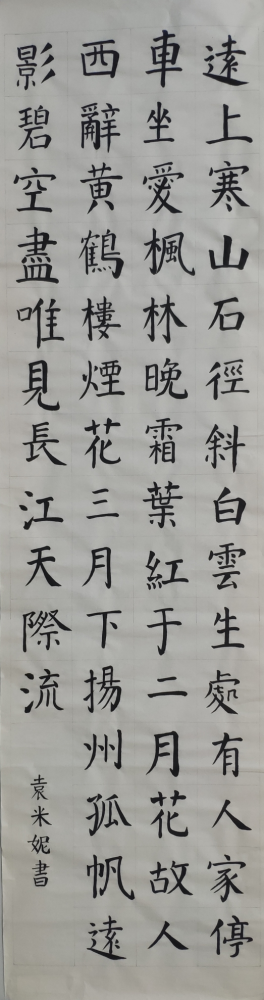 遠上寒山石徑斜白雲生處有人家停
車坐愛楓林晚霜葉紅于二月花故人
西辭黃鶴樓煙花三月下揚州孤帆遠
影碧空盡唯見長江天際流
袁米妮書